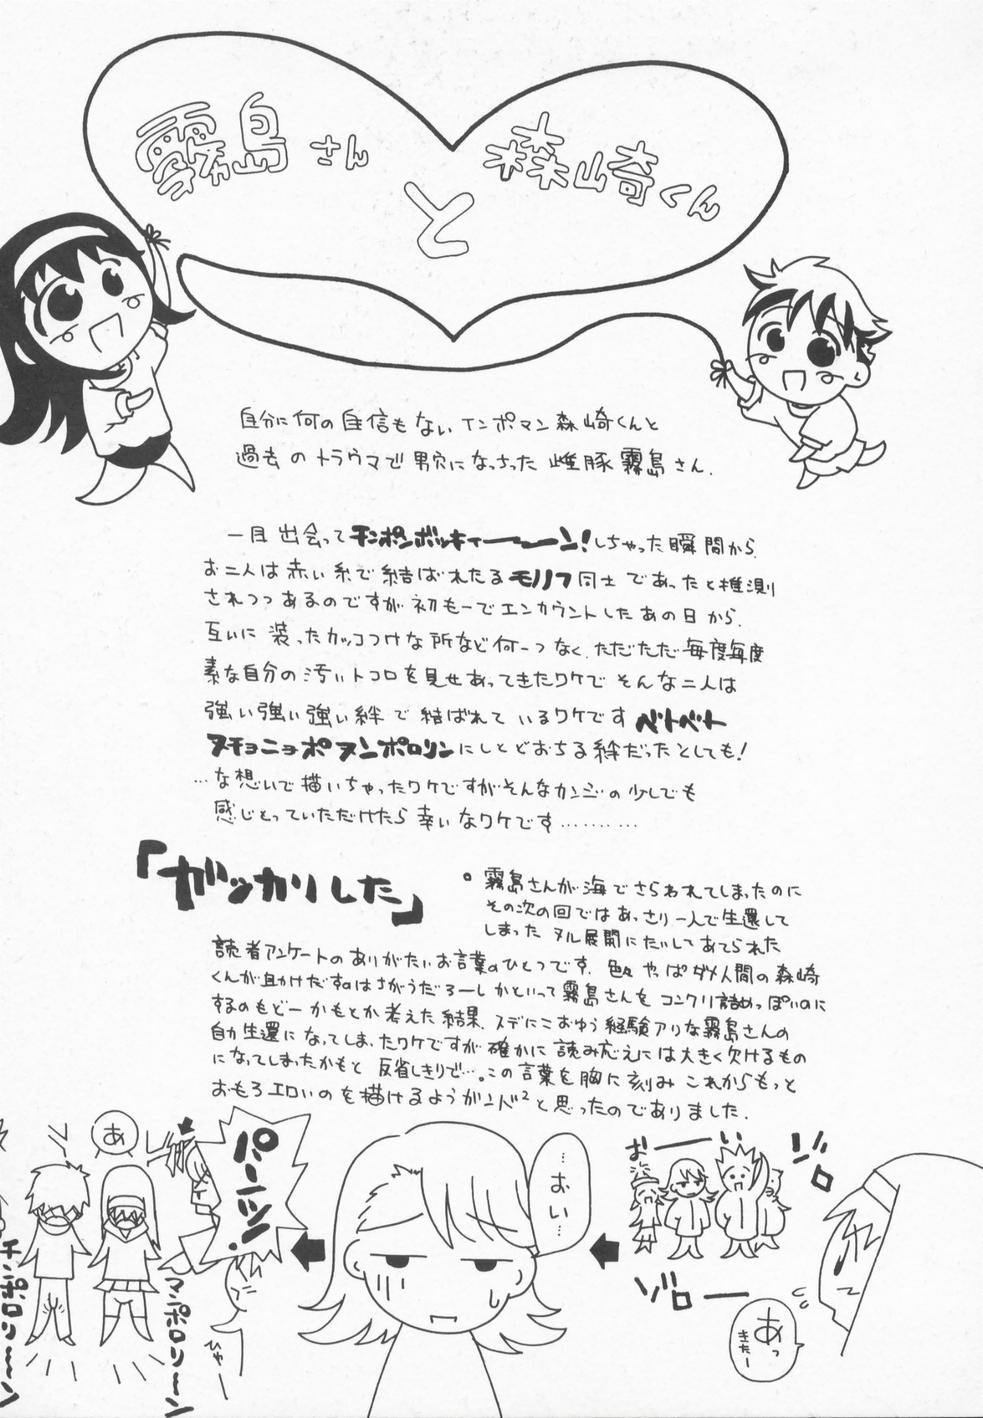 霧島さん
と
森崎くん
自分に何の自信もないインポマン森崎くんと
過去のトラウマで男穴になっちった雌豚霧島さん.
一目出会ってチンポンボッキィーーーン!しちゃった瞬間から.
お二人は赤い糸で結ばれたるモノノフ同士であったと推測
されつつあるのですが初もーでエンカウントしたあの日から.
互いに装ったカッコつけな所など何一つなく、ただただ毎度毎度
素な自分の汚いトコロを見せあってきたワケでそんな二人は
強い強い強い絆で結ばれているワケですベトベト
ヌチョニョポヌンポロリンにしとどおちる絆だったとしても!
…な想いで描いちゃったワケですがそんなカンジの少しでも
感じとっていただけたら幸いなワケです………
「ガッカリした」
。霧島さんが海でさらわれてしまったのに
その次の回ではあっさり一人で生還して
しまったヌル展開にたいしてあてられた
読者アンケートのありがたいお言葉のひとつです. 色々やっぱダメ人間の森崎
くんが助けだすのはさがうだろーしかといって霧島さんをコンクリ詰めっぽいのに
するのもどーかもとか考えた結果、スデにこおゆう経験アリな霧島さんの
自力生還になってしまったワケですが確かに読み応えには大きく欠けるもの
になってしまったかもと反省しきりで…。この言葉を胸に刻みこれからもっと
おもろエロいのを描けるようがンバ²と思ったのでありました.
おーーい
ゾロ
ゾロー
あっ
きたー
…おい…
パーーン!
ひゃー
あ
マンポロリーーン
チンポロリーーン